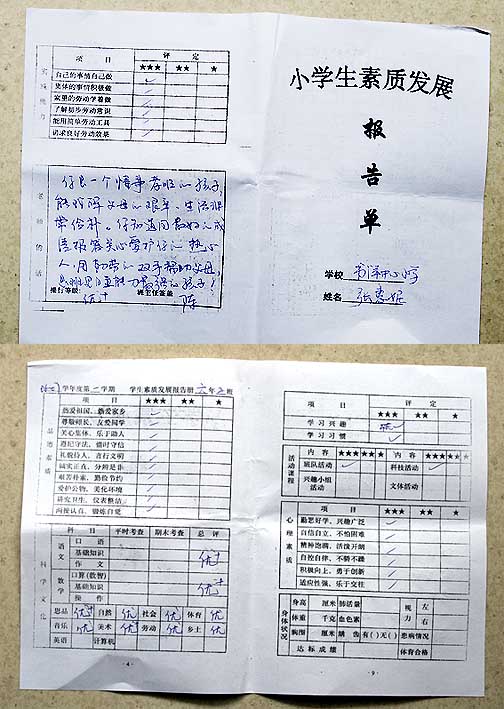 项 目 评 定
★★★ ★★ ★
自己的事情自己做 ✓
集体的事情积极做 ✓
家里的劳动学着做 ✓
了解初步劳动常识 ✓
使用简单劳动工具 ✓
讲求良好劳动效果 ✓
老师的话
你是一个懂事孝顺的孩子,
能理解父母的艰辛,生活非
常俭朴。
人,用勤劳的双手帮助父母
操行等级: 优+ 班主任签盖 陈
小学生素质发展
报
告
单
学校
姓名 张惠妮
学年度第一学期 学生素质发展报告册 六年2班
品德素质
项 目 ★★★ ★★ ★
热爱祖国、热爱家乡 ✓
尊敬师长、友爱同学 ✓
关心集体、乐于助人 ✓
遵纪守法、惜时守信 ✓
礼貌待人、言行文明 ✓
诚实正直、分辨是非 ✓
艰苦朴素、勤俭节约 ✓
爱护公物、美化环境 ✓
讲究卫生、仪表整洁 ✓
科学文化
科 目 平时考查 期末考查 总 评
语文 口 语
基础知识 优+
作 文
数学 口算(数智)
基础知识 优+
操 作
思品 优+ 自然 优 社会 优 体育 优
音乐 优 美术 优 劳动 优 乡土 优
英语 计算机
·4·
项 目 评 定
★★★ ★★ ★
学习兴趣 优
学习习惯 ✓
活动课程
内 容 ★★★ ★★ ★ 内 容 ★★★ ★★ ★
班队活动 ✓ 科技活动 ✓
兴趣小组活动 文体活动
心理素质
项 目 ★★★ ★★ ★
勤思好学、兴趣广泛 ✓
自信自立、不怕困难 ✓
精神饱满、活泼开朗 ✓
自控自律、不骄不躁 ✓
积极向上、勇于创新 ✓
适应性强、乐于交往 ✓
身体状况
身高 厘米 肺活量 视力 左
体重 千克 血色素 右
胸围 厘米 龋 齿 有( )无( ) 患病情况
达 标 成 绩 体育合格
·9·